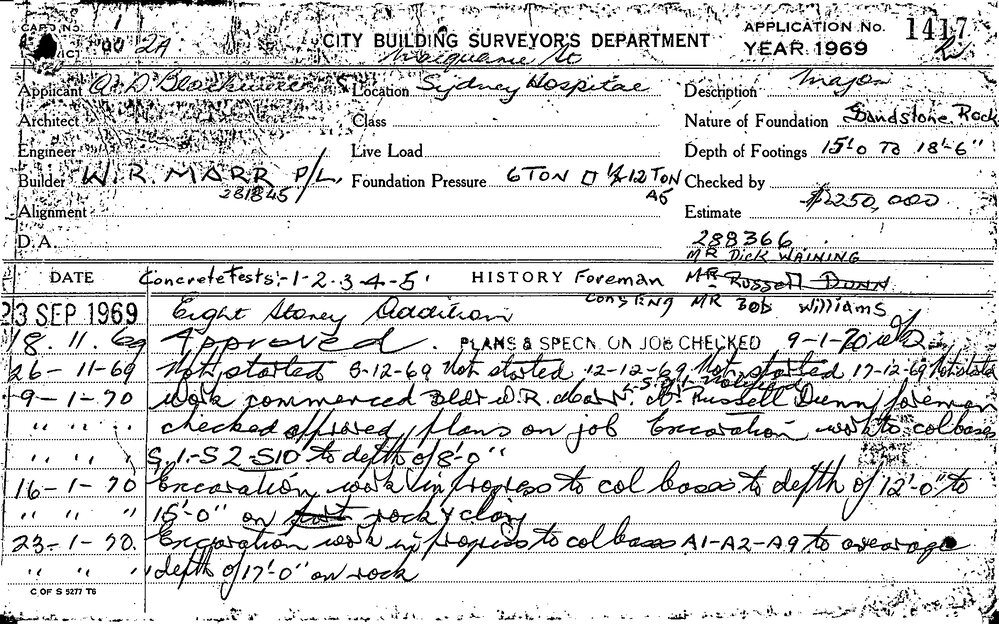 CARD NO. 1
CITY BUILDING SURVEYOR'S DEPARTMENT
APPLICATION No. 1417
YEAR 1969
Macquarie St
Applicant
Location Sydney Hospital
Description Major
Architect
Class
Nature of Foundation Sandstone Rock
Engineer
Live Load
Depth of Footings 15'0 TO 18'-6"
Builder W. R. MARR P/L.
281845
Foundation Pressure 6 TON 12 TON
Checked by
Alignment
Estimate $250,000
D. A.
288366
MR Dick WAINING
DATE Concrete Tests:- 1-2-3-4-5 HISTORY Foreman MR Russell DUNN
Cons ENG MR BOB Williams
23 SEP 1969 Eight Storey Addition
18. 11. 69 Approved. PLANS & SPECN. ON JOB CHECKED 9-1-70
26-11-69 Not started 5-12-69 Not started 12-12-69 Not started 17-12-69 Not started
9-1-70 Work commenced Bldr W.R. Marr. Mr Russell Dunn foreman
" " " checked approved plans on job Excavation work to col bases
" " " S.1-S2-S10 to depth of 8'-0"
16-1-70 Excavation work in progress to col bases to depth of 12'-0" to
" " " 15'-0" on rock & clay
23-1-70. Excavation work in progress to col bases A1-A2-A9 to average
" " " depth of 17'-0" on rock
C OF S 5277 T6